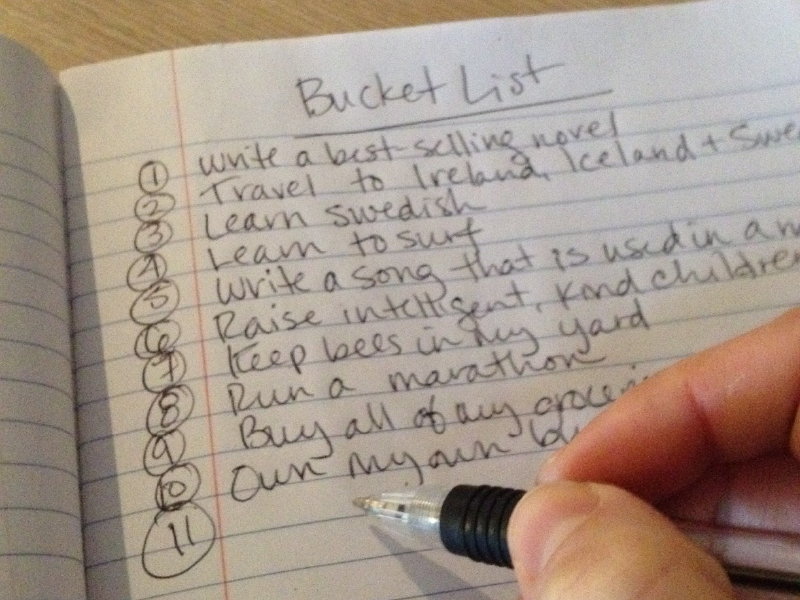 Bucket List
1 Write a best selling novel
2 Travel to Ireland, Iceland + Swe
3 Learn swedish
4 Learn to surf
5 Write a song that is used in a m
6 Raise intelligent, kind children
7 Keep bees in my yard
8 Run a marathon
9 Buy all of my groceri
10 Own my own bu
11